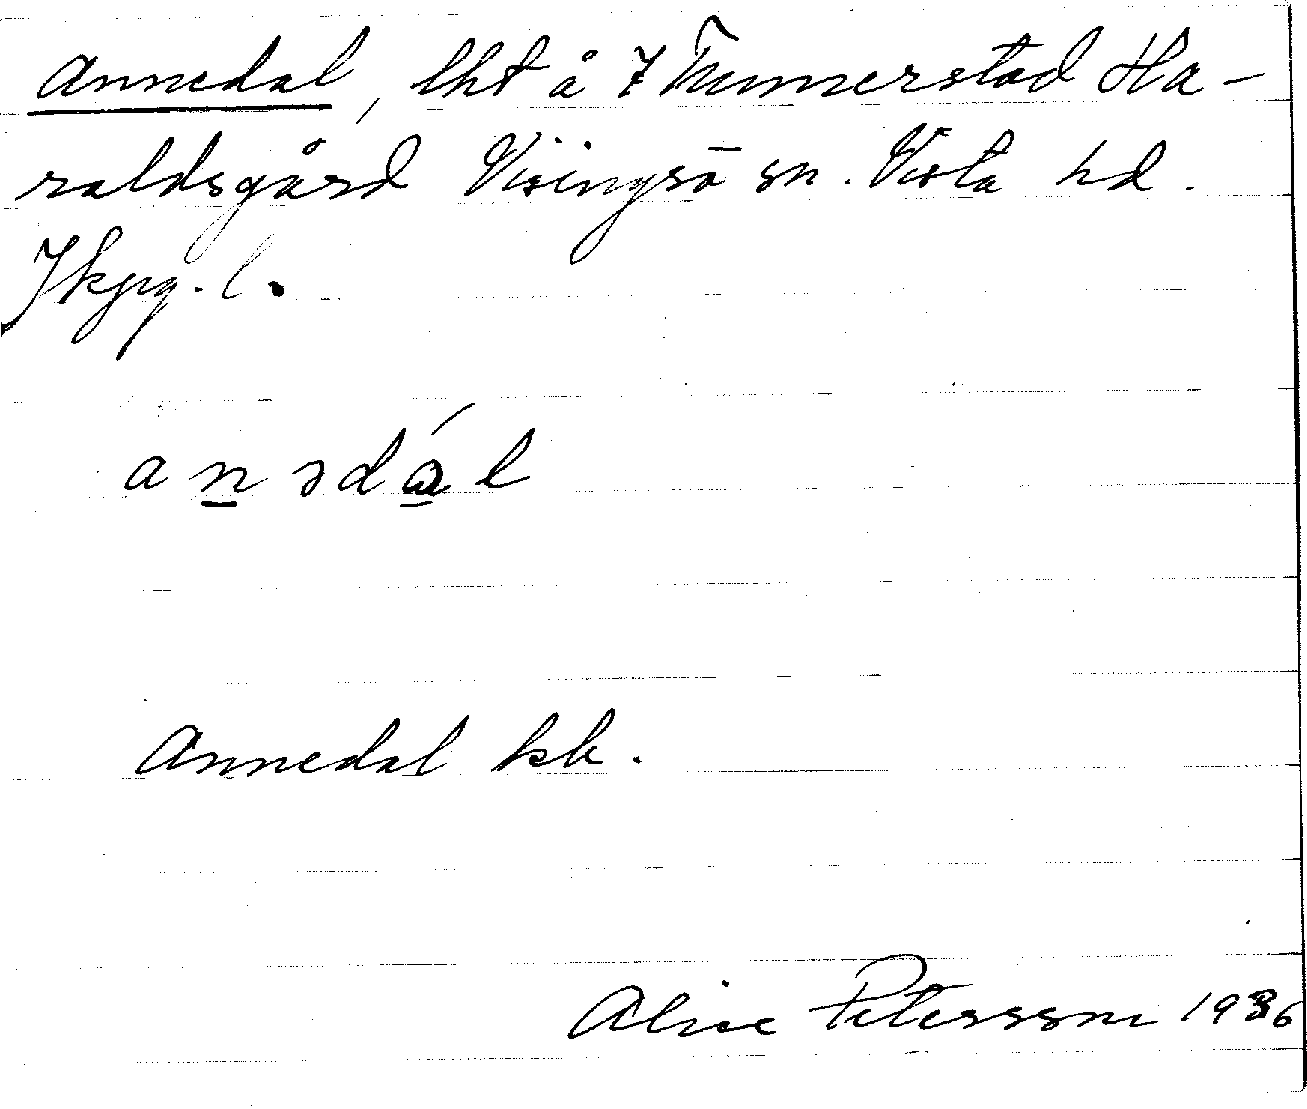 Annedal, lht å 7 Tunnerstad Ha-
raldsgård Visingsö sn. Vista hd.
Jkpg. l.
anədál
Annedal kb.
Alice Petersson 1936